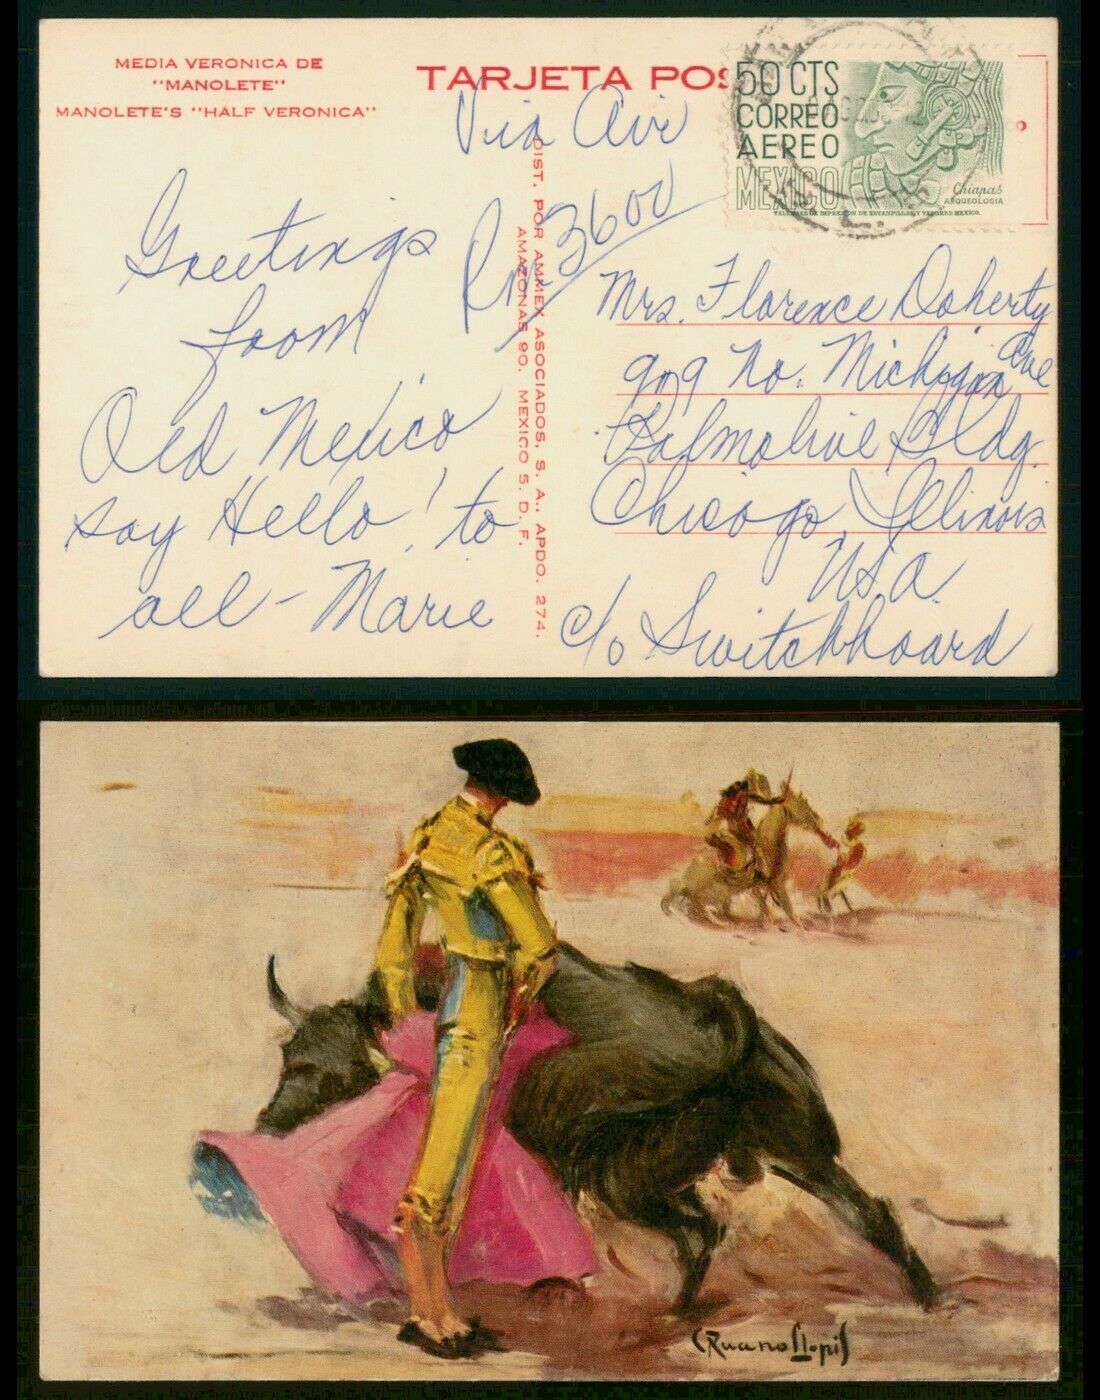 MEDIA VERONICA DE
"MANOLETE"
MANOLETE'S "HALF VERONICA"
TARJETA POS
Via Air
50 CTS
CORREO
AEREO
MEXICO
Chiapas
ARQUEOLOGIA
TALLERES DE IMPRESION DE ESTAMPILLAS Y VALORES-MEXICO.
Greetings
from
Old Mexico
say Hello! to
all - Marie
DIST. POR AMMEX ASOCIADOS, S. A., APDO. 274.
AMAZONAS 90. MEXICO 5, D. F.
Rm 3600
Mrs. Florence Doherty
919 No. Michigan Ave
Palmolive Bldg.
Chicago, Illinois
U.S.A.
c/o Switchboard
C Ruano Llopis